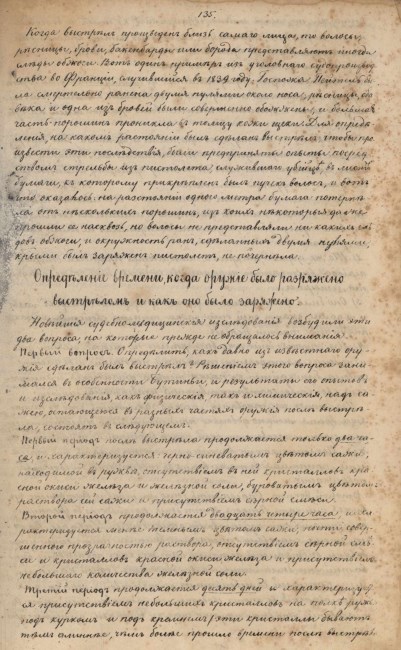 135.
Когда выстрѣлъ произведенъ близь самаго лица, то волосы,
рѣсницы, брови, бакенбарды или борода представляютъ иногда
слѣды обжоги. Вотъ одинъ примѣръ изъ уголовнаго судопроизвод
ства во Франціи, случившійся въ 1839 году: Госпожа бы
ла смертельно ранена двумя пулями около носа, рѣсницы,
и одна изъ бровей были совершенно обожжены, и большая
часть порошинъ проникла въ толщу кожи щеки. Для опредѣ
ленія, на какомъ разстояніи былъ сдѣланъ выстрѣлъ, чтобы про
извести эти послѣдствія, были предприняты опыты посред
ствомъ стрѣльбы изъ пистолета, служившаго убійцѣ, въ листъ
бумаги, къ которому прикрѣпленъ былъ пучекъ волосъ, и вотъ
что оказалось: на разстояніи одного метра бумага потерпѣ
ла отъ нѣсколькихъ порошинъ, изъ коихъ нѣкоторыя даже
прошли ее насквозь, но волосы не представляли ни какихъ слѣ
довъ обжоги, и окружность ранъ, сдѣланныхъ двумя пулями,
коими былъ заряженъ пистолетъ, не почернѣла.
Опредѣленіе времени, когда оружіе было разряжено
выстрѣломъ и какъ оно было заряжено.
Новѣйшія судебномедицинскія изслѣдованія возбудили эти
два вопроса, на которые прежде не обращалось вниманія.
Первый вопросъ. Опредѣлить, какъ давно изъ извѣстнаго ору
жія сдѣланъ былъ выстрѣлъ? Рѣшеніемъ этого вопроса зани
мался въ особенности Бутиньи, и результаты его опытовъ
и изслѣдованія, какъ физическія, такъ и химическія, надъ са
жею, остающеюся въ разныхъ частяхъ оружія послѣ выстрѣ
ла, состоятъ въ слѣдующемъ:
Первый періодъ послѣ выстрѣла продолжается только два ча
са, и характеризуется черно-синеватымъ цвѣтомъ сажи,
находимой въ ружьѣ, отсутствіемъ въ ней кристалловъ кра
сной окиси желѣза и желѣзной соли, буроватымъ цвѣтомъ
раствора сей сажи и присутствіемъ сѣрной
Второй періодъ продолжается двадцать четыре часа, и ха
рактеризуется менѣе темнымъ цвѣтомъ сажи, почти совер
шенною прозрачностью раствора, отсутствіемъ сѣрной
и кристалловъ красной окиси желѣза и присутствіемъ
небольшаго количества желѣзной соли.
Третій періодъ продолжается десять дней и характеризует
ся присутствіемъ небольшихъ кристалловъ на полкѣ ружья
подъ куркомъ и подъ кремнемъ; эти кристаллы бываютъ
тѣмъ длиннѣе, чѣмъ болѣе прошло времени послѣ выстрѣ